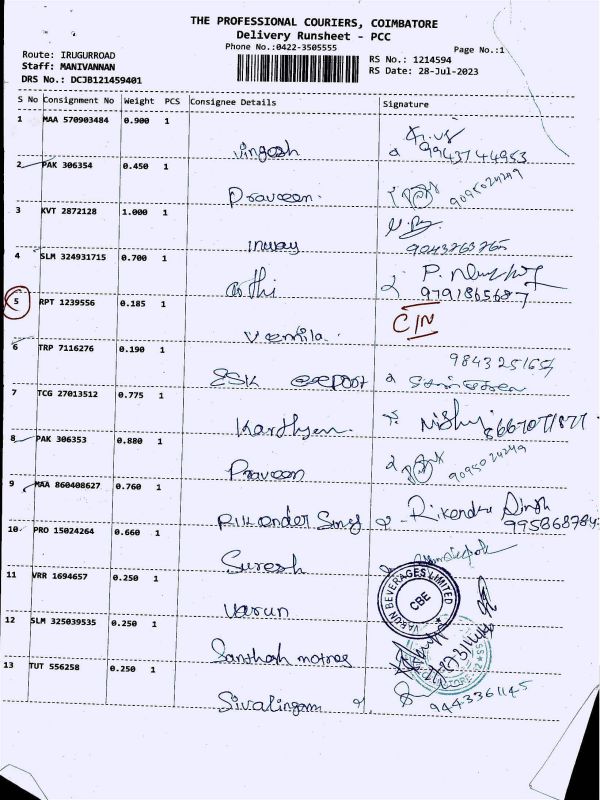 THE PROFESSIONAL COURIERS, COIMBATORE
Delivery Runsheet - PCC
Phone No.:0422-3505555
Page No.:1
Route: IRUGURROAD
Staff: MANIVANNAN
DRS No.: DCJB121459401
RS No.: 1214594
RS Date: 28-Jul-2023
S No Consignment No Weight PCS Consignee Details Signature
1 MAA 570903484 0.900 1
Vingesh 9943744953
2 PAK 306354 0.450 1
Praveen. 9095024249
3 KVT 2872128 1.000 1
9043763765
4 SLM 324931715 0.700 1
9791865687
5 RPT 1239556 0.185 1
C/N
Veemila.
6 TRP 7116276 0.190 1
ESK
7 TCG 27013512 0.775 1
Karthyen.
8 PAK 306353 0.880 1
Praveen 9095024249
9 MAA 860408627 0.760 1
Rikender Singh
10 PRO 15024264 0.660 1
Suresh
11 VRR 1694657 0.250 1
Varun
VARUN BEVERAGES LIMITED
CBE
12 SLM 325039535 0.250 1
Santhosh motres
13 TUT 556258 0.250 1
Sivalingam 9443361145